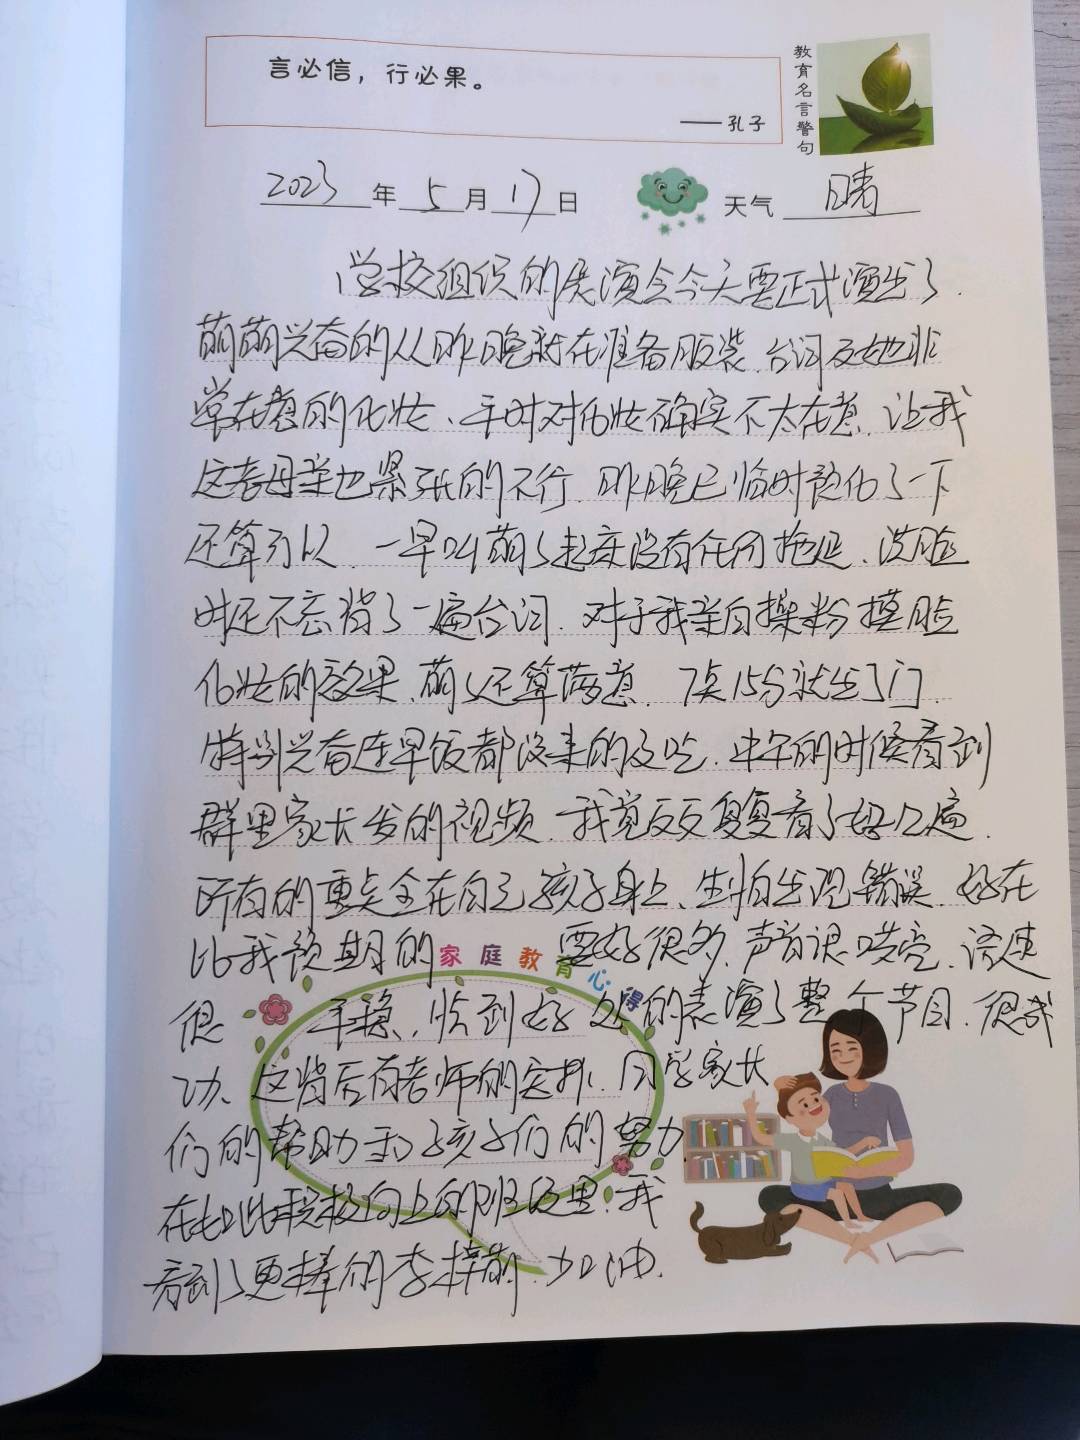 言必信，行必果。
——孔子
教育名言警句
2023年5月17日
天气 晴
学校组织的展演会今天要正式演出了.
萌萌兴奋的从昨晚就在准备服装、台词及她非
常在意的化妆、平时对化妆确实不太在意.让我
这老母亲也紧张的不行.昨晚已临时预化了一下
还算可以.一早叫萌萌起床没有任何拖延.洗脸
时还不忘背了一遍台词.对于我亲自操粉摸脸
化妆的效果、萌萌还算满意.7点15分就出了门
特别兴奋连早饭都没来的及吃.中午的时候看到
群里家长发的视频.我竟反反复复看了好几遍.
所有的重点全在自己孩子身上、生怕出现错误.好在
比我预期的要好很多.声音很嘹亮.语速
家庭教育心得
很平稳、恰到好处的表演了整个节目.很成
功、这背后有老师的安排、同学家长
们的帮助和孩子们的努力
在如此积极向上的班级里.我
看到了更棒的李梓萌.加油.